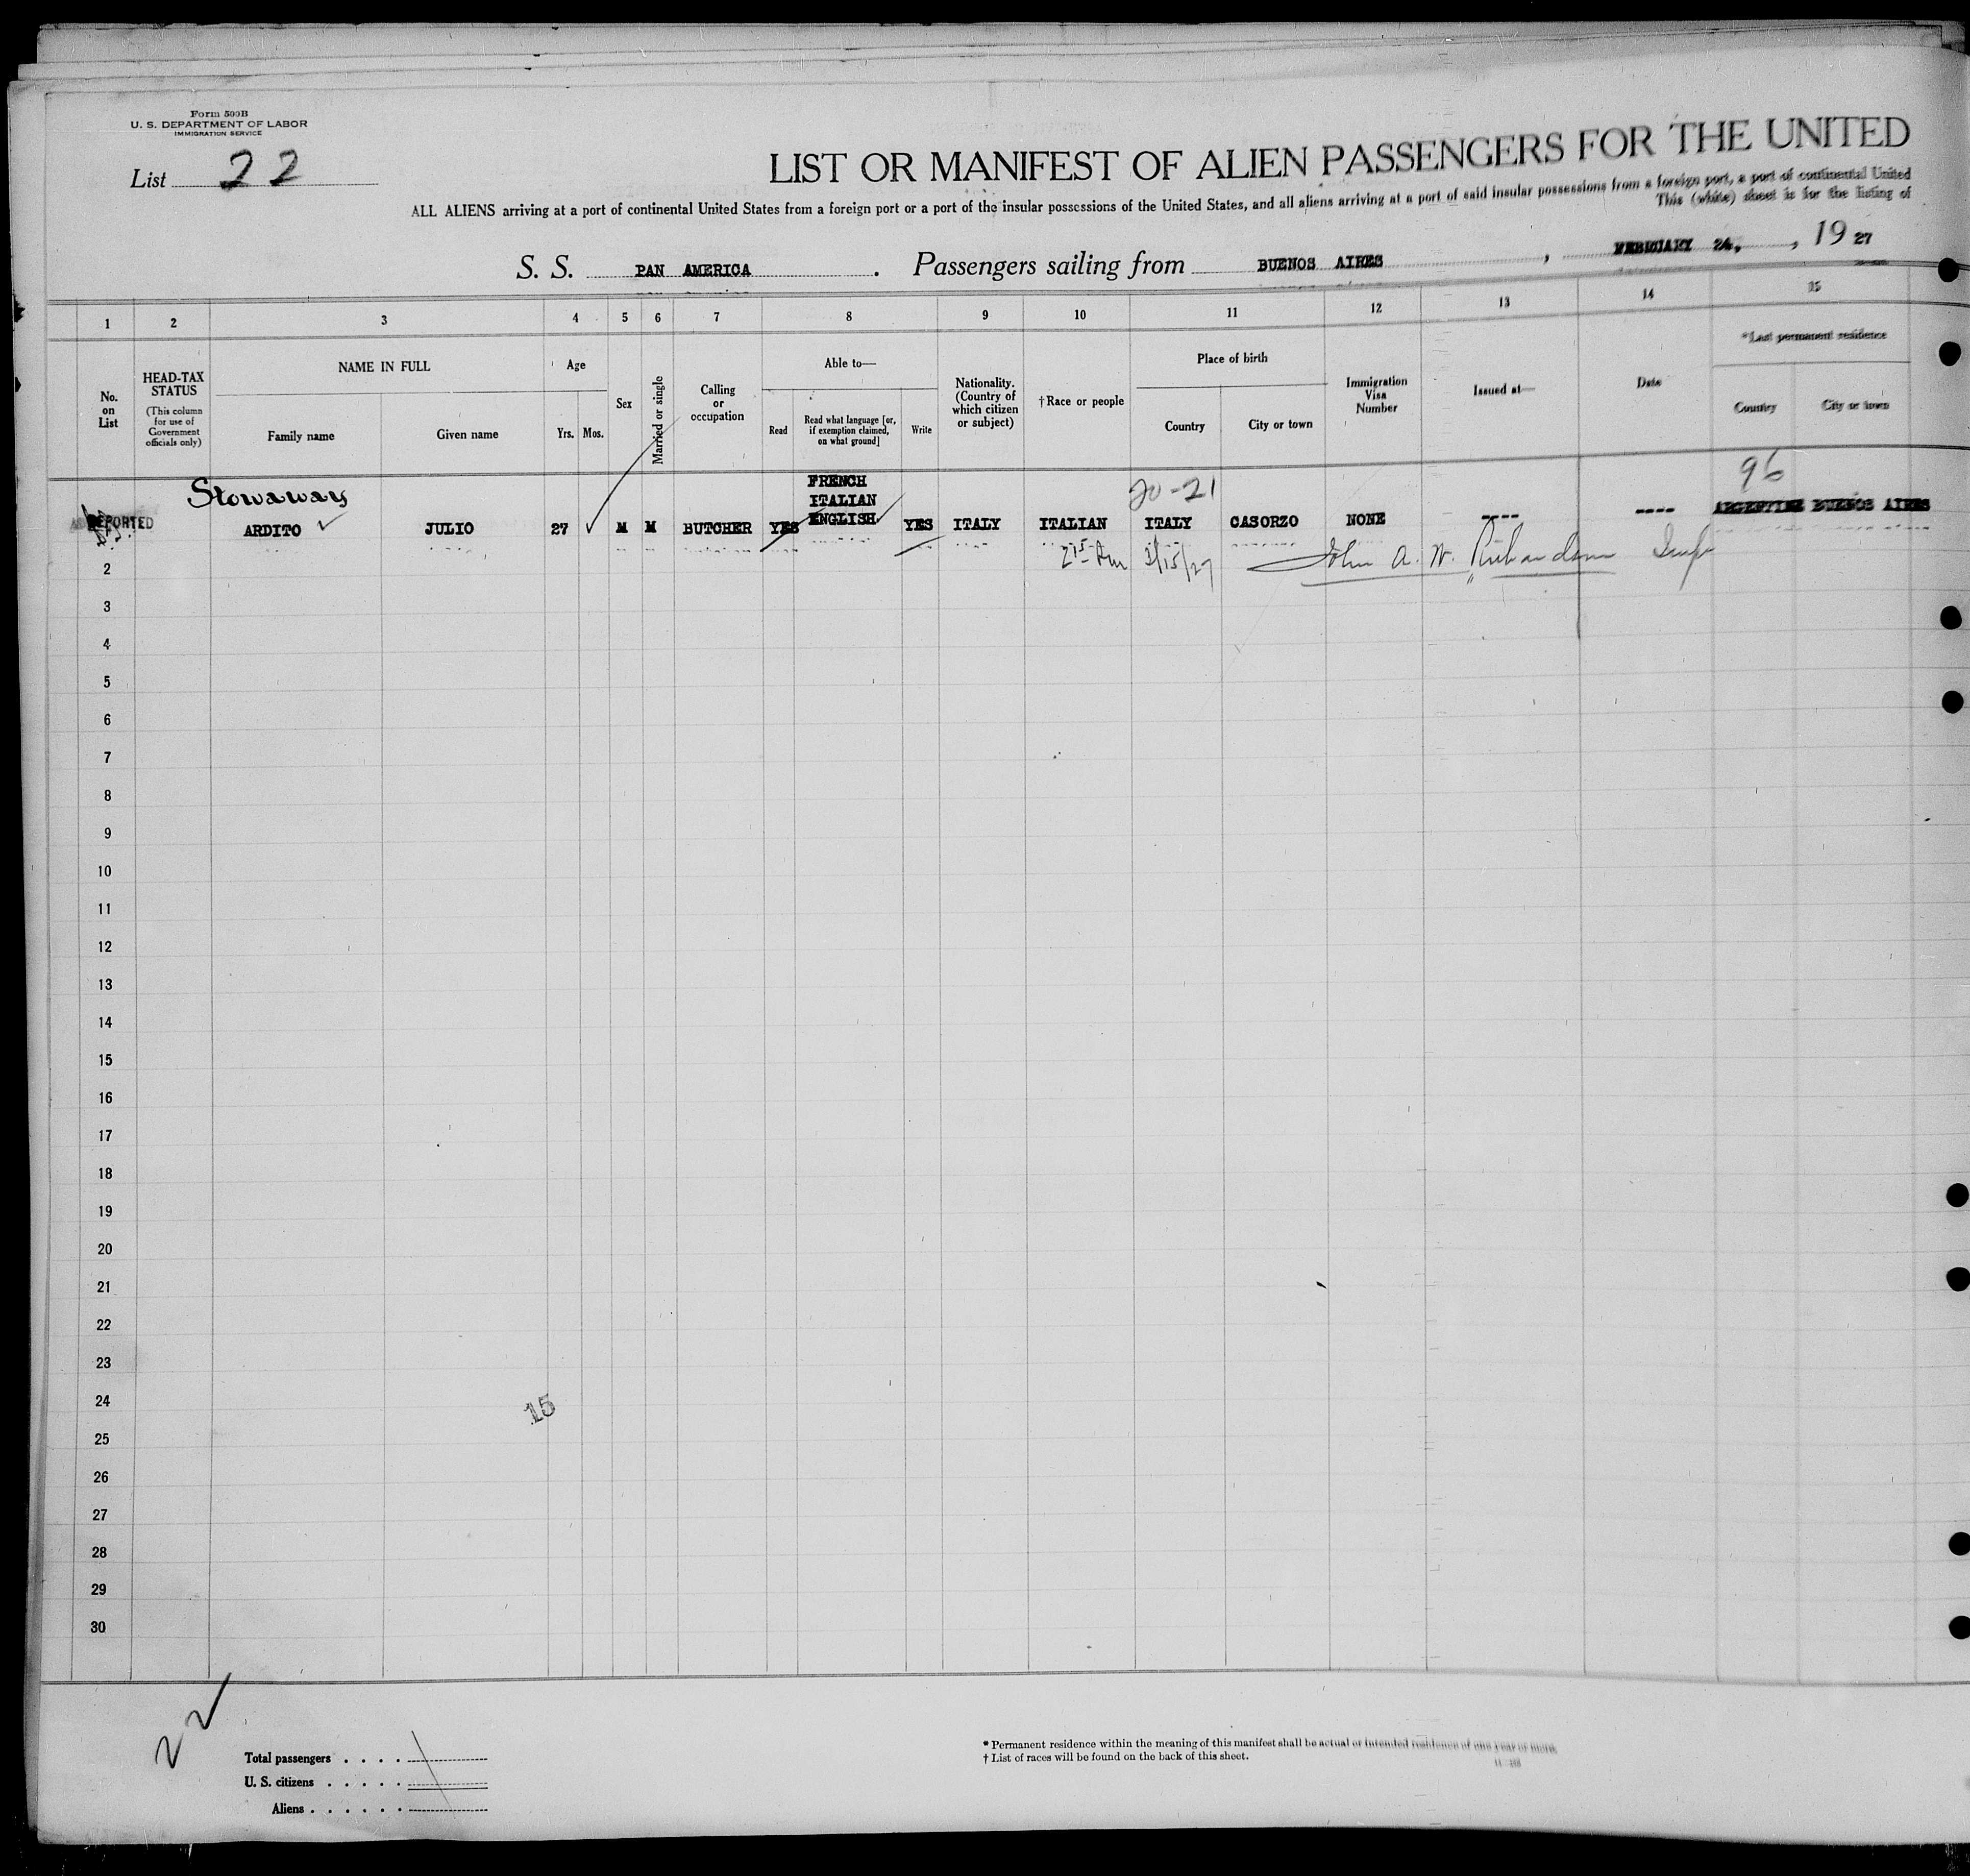 Form 500B
U. S. DEPARTMENT OF LABOR
IMMIGRATION SERVICE
List 22
LIST OR MANIFEST OF ALIEN PASSENGERS FOR THE UNITED
ALL ALIENS arriving at a port of continental United States from a foreign port or a port of the insular possessions of the United States, and all aliens arriving at a port of said insular possessions from a foreign port, a port of continental United
This (white) sheet is for the listing of
S. S. PAN AMERICA . Passengers sailing from BUENOS AIRES , FEBRUARY 24, , 19 27
1 2 3 4 5 6 7 8 9 10 11 12 13 14 15
No. on List
HEAD-TAX STATUS
(This column for use of Government officials only)
NAME IN FULL
Family name Given name
Age
Yrs. Mos.
Sex
Married or single
Calling or occupation
Able to—
Read
Read what language [or, if exemption claimed, on what ground]
Write
Nationality. (Country of which citizen or subject)
†Race or people
Place of birth
Country City or town
Immigration Visa Number
Issued at—
Date
*Last permanent residence
Country City or town
Stowaway FRENCH 20-21 96
ITALIAN
DEPORTED ARDITO JULIO 27 M M BUTCHER YES ENGLISH YES ITALY ITALIAN ITALY CASORZO NONE ---- ---- ARGENTINE BUENOS AIRES
3/15/27 John A. W. Richardson Insp
2
3
4
5
6
7
8
9
10
11
12
13
14
15
16
17
18
19
20
21
22
23
24
15
25
26
27
28
29
30
Total passengers . . . .
U. S. citizens . . . . .
Aliens . . . . . .
* Permanent residence within the meaning of this manifest shall be actual or intended residence of one year or more.
† List of races will be found on the back of this sheet.